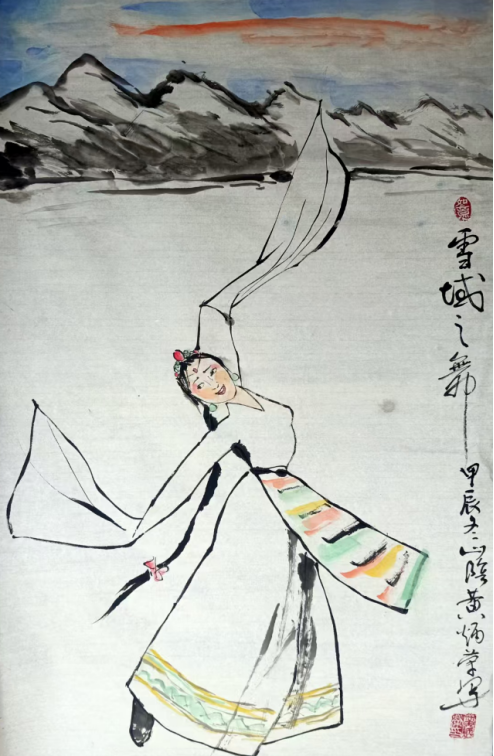 雪域之舞
甲辰冬山陰黄炳荣写